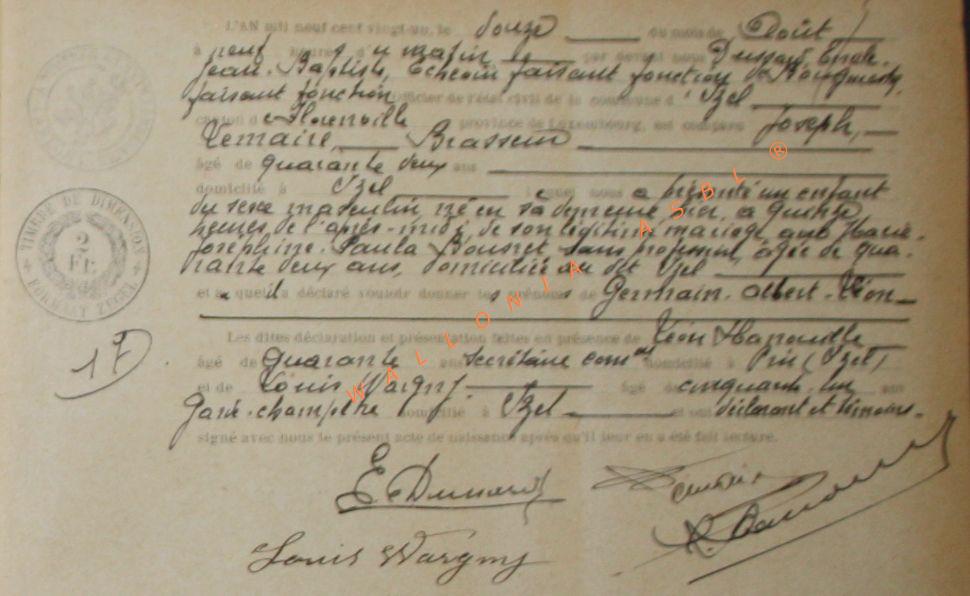 L'AN mil neuf cent vingt-un, le douze du mois de Août
à neuf heures du matin par devant nous Emile
Jean-Baptiste, Echevin faisant fonction de Bourgmestre,
faisant fonction officier de l'état civil de la commune d'Izel
canton d Florenville province de Luxembourg, est comparu Joseph,
Lemaire, Brasseur
âgé de quarante deux ans
domicilié à Izel lequel nous a présenté un enfant
du sexe masculin né en sa demeure hier, à quinze
heures de l'après-midi, de son légitime mariage avec Marie-
Josephine-Paula sans profession, âgée de qua-
rante deux ans, domiciliée au dit Izel
et auquel il a déclaré vouloir donner les prénoms de Germain-Albert-Léon
Les dites déclaration et présentation faites en présence de Léon
âgé de quarante ans secrétaire comal domicilié à Pin (Izel)
et de Louis Wargny âgé de cinquante un ans
Garde-champêtre domicilié à Izel et ont déclarant et témoins
signé avec nous le présent acte de naissance après qu'il leur en a été fait lecture.
TIMBRE DE DIMENSION
2
FR.
FORMAT ZEGEL
17
Lemaire
Louis Wargny
WALLONIA ASBL ®